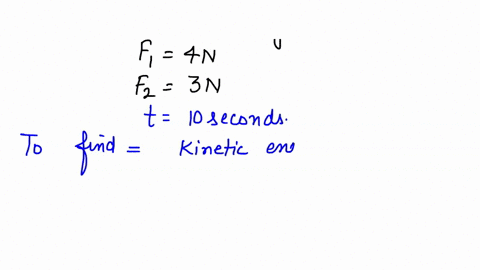 F₁ = 4N u
F₂ = 3N
t = 10 seconds.
To find = Kinetic ene